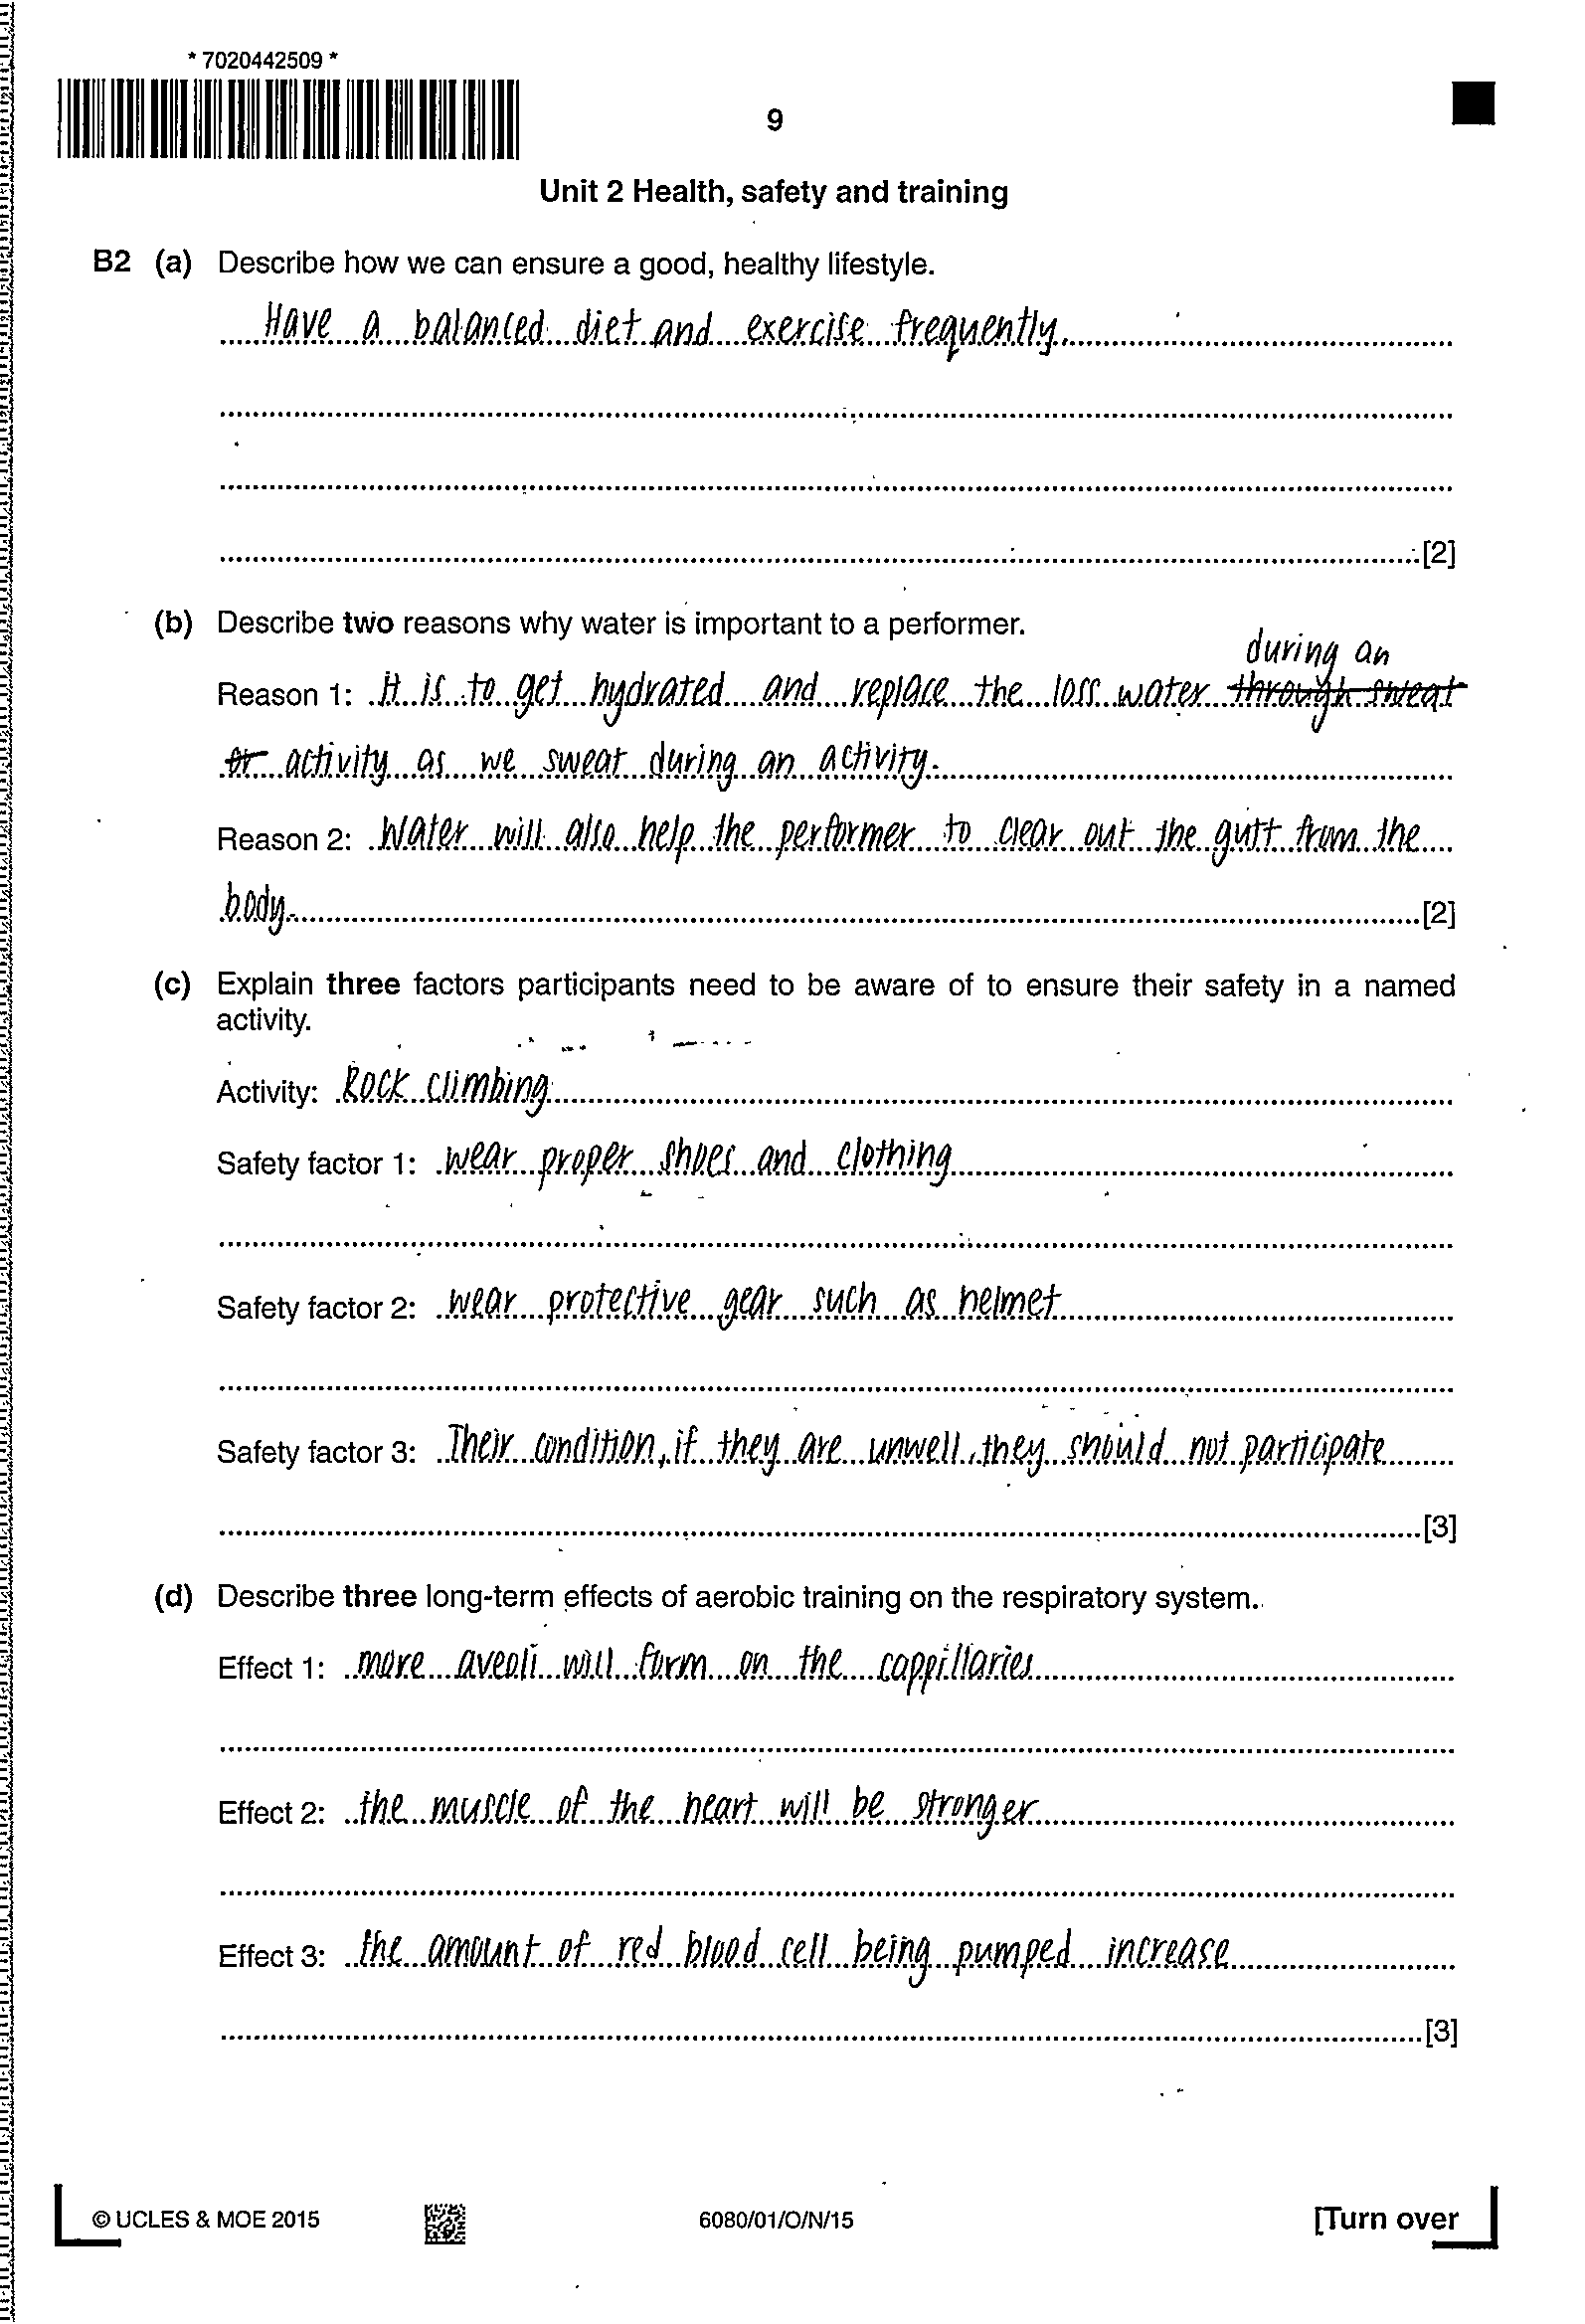 * 7020442509 *
9
Unit 2 Health, safety and training
B2 (a) Describe how we can ensure a good, healthy lifestyle.
Have a balanced diet and exercise frequently.
[2]
(b) Describe two reasons why water is important to a performer.
during an
Reason 1: It is to get hydrated and replace the loss water through sweat
or activity as we sweat during an activity.
Reason 2: Water will also help the performer to clear out the gutt from the
body. [2]
(c) Explain three factors participants need to be aware of to ensure their safety in a named
activity.
Activity: Rock climbing
Safety factor 1: wear proper shoes and clothing
Safety factor 2: wear protective gear such as helmet
Safety factor 3: Their condition, if they are unwell, they should not participate
[3]
(d) Describe three long-term effects of aerobic training on the respiratory system.
Effect 1: more aveoli will form on the cappillaries
Effect 2: the muscle of the heart will be stronger
Effect 3: the amount of red blood cell being pumped increase
[3]
© UCLES & MOE 2015 6080/01/O/N/15 [Turn over